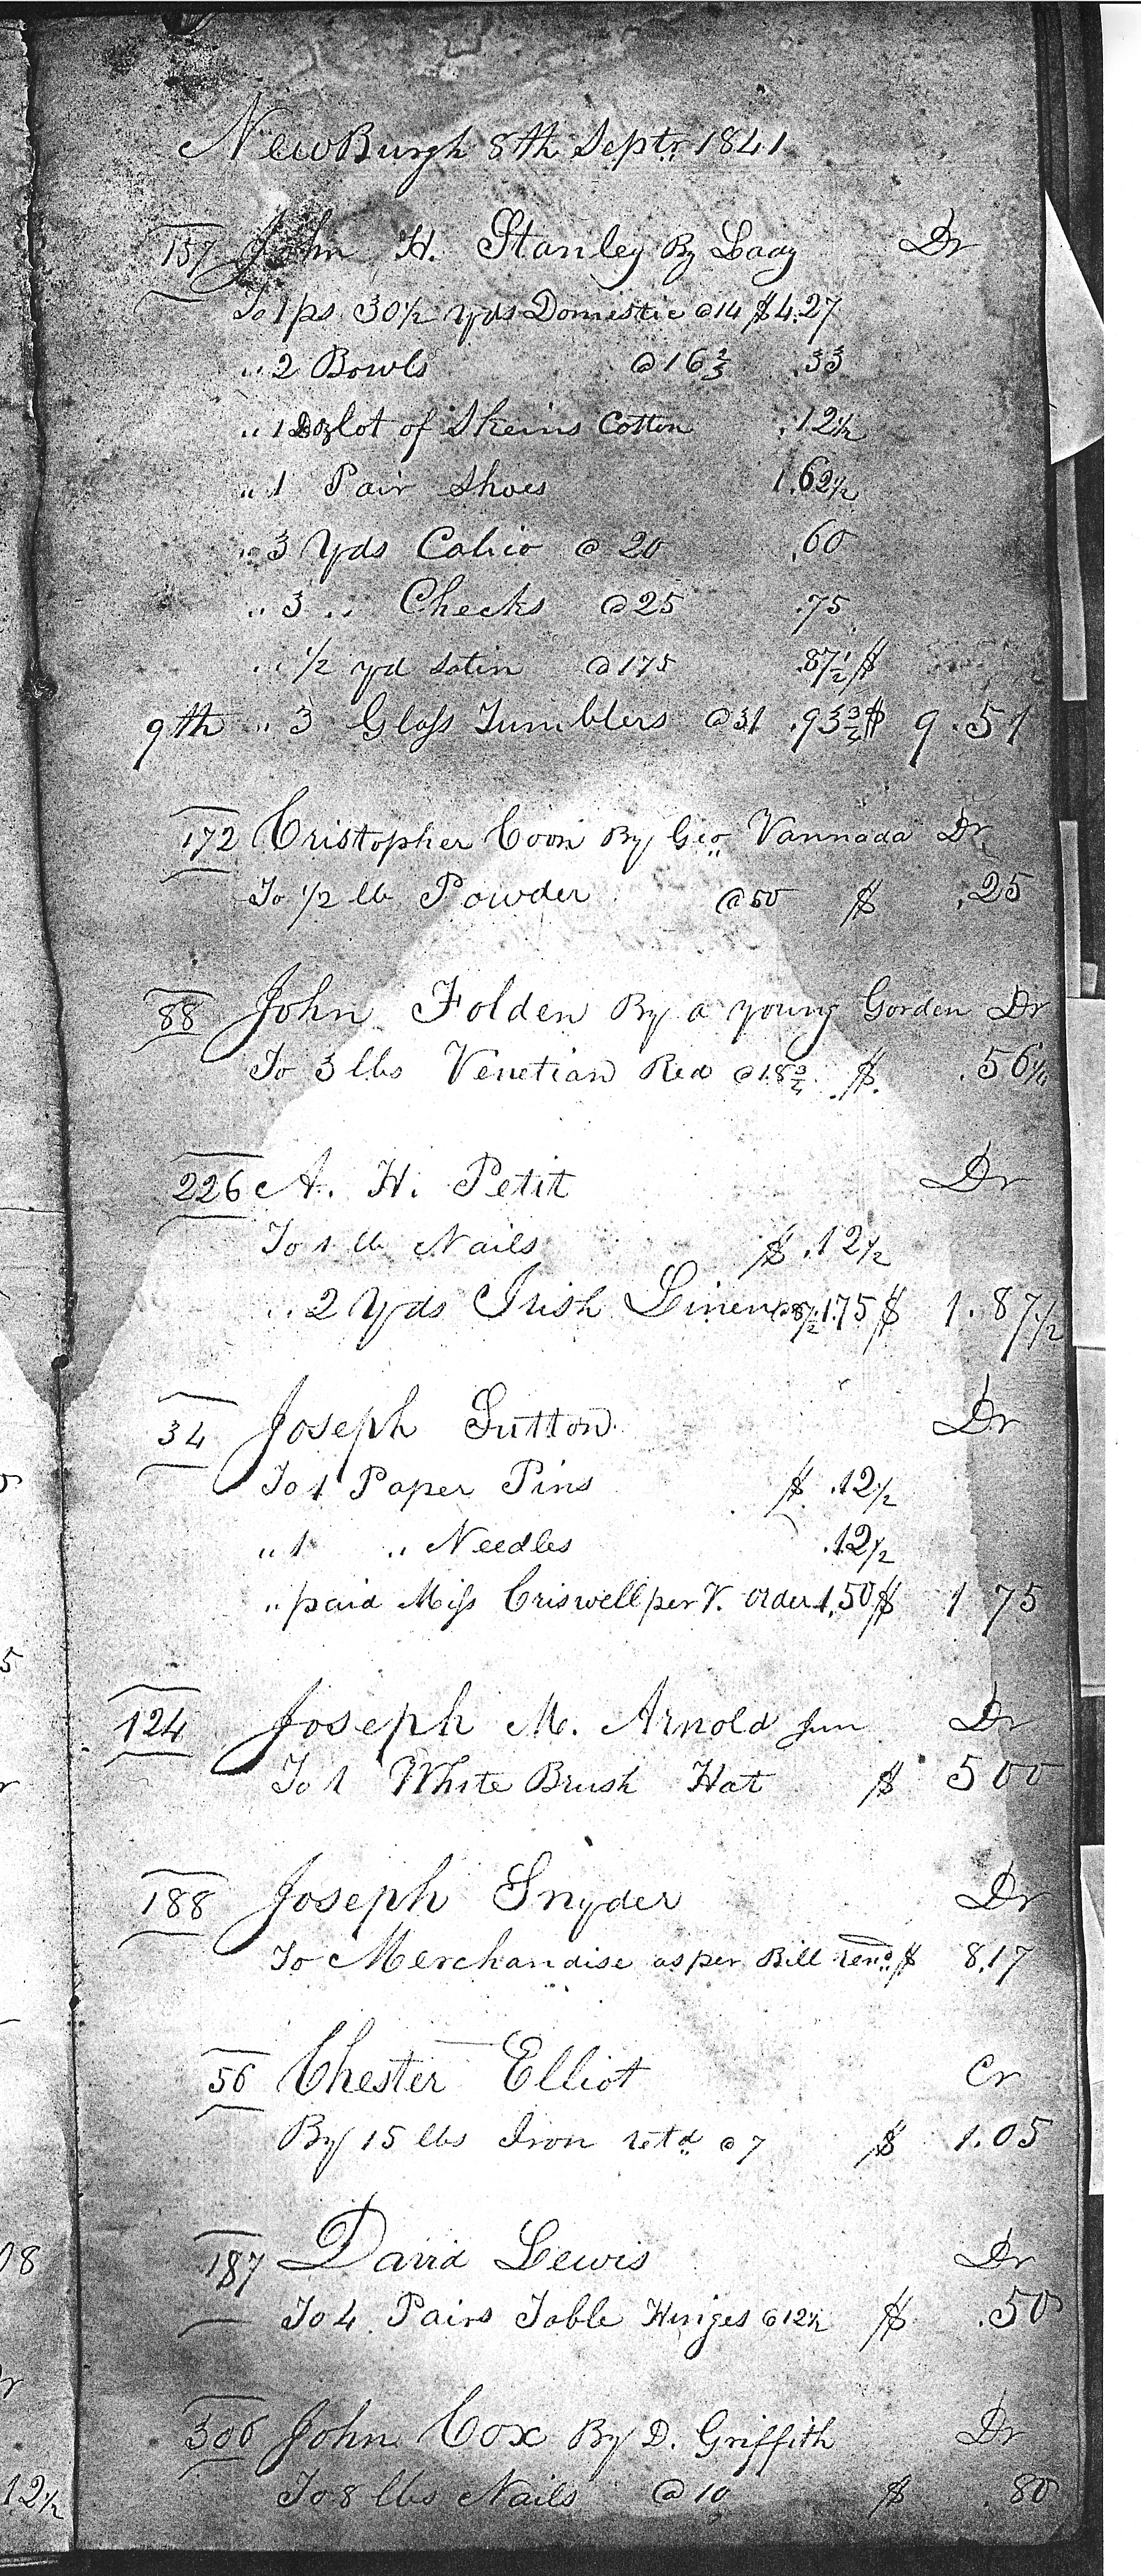 NewBurgh 8th Septr 1841
157 John H. Stanley By Lady Dr
To 1 ps 30½ yds Domestic @14 $4.27
„ 2 Bowls @16⅔ .33
„ 1 lot of Skeins Cotton .12½
„ 1 Pair Shoes 1.62½
„ 3 Yds Calico @ 20 .60
„ 3 „ Checks @25 .75
„ ½ yd Satin @175 .87½ $
9th „ 3 Glass Tumblers @31 .93¾ $ 9.51
172 Cristopher Coon By Geo Vannada Dr
To ½ lb Powder @50 $ .25
88 John Folden By a young Gorden Dr
To 3 lbs Venetian Red @18¾ $ .56¼
226 A. H. Petit Dr
To 1 lb Nails $ .12½
„ 2 Yds Irish Linen @87½ 1.75 $ 1.87½
34 Joseph Sutton Dr
To 1 Paper Pins $ .12½
„ 1 „ Needles .12½
„ paid Miss Criswell per V. order 1.50 $ 1 75
124 Joseph M. Arnold Jun Dr
To 1 White Brush Hat $ 5 00
188 Joseph Snyder Dr
To Merchandise as per Bill rend $ 8.17
56 Chester Elliot Cr
By 15 lbs Iron retd @7 $ 1.05
187 David Lewis Dr
To 4 Pairs Table Hinges @12½ $ .50
306 John Cox By D. Griffith Dr
To 8 lbs Nails @10 $ .80
08
12½